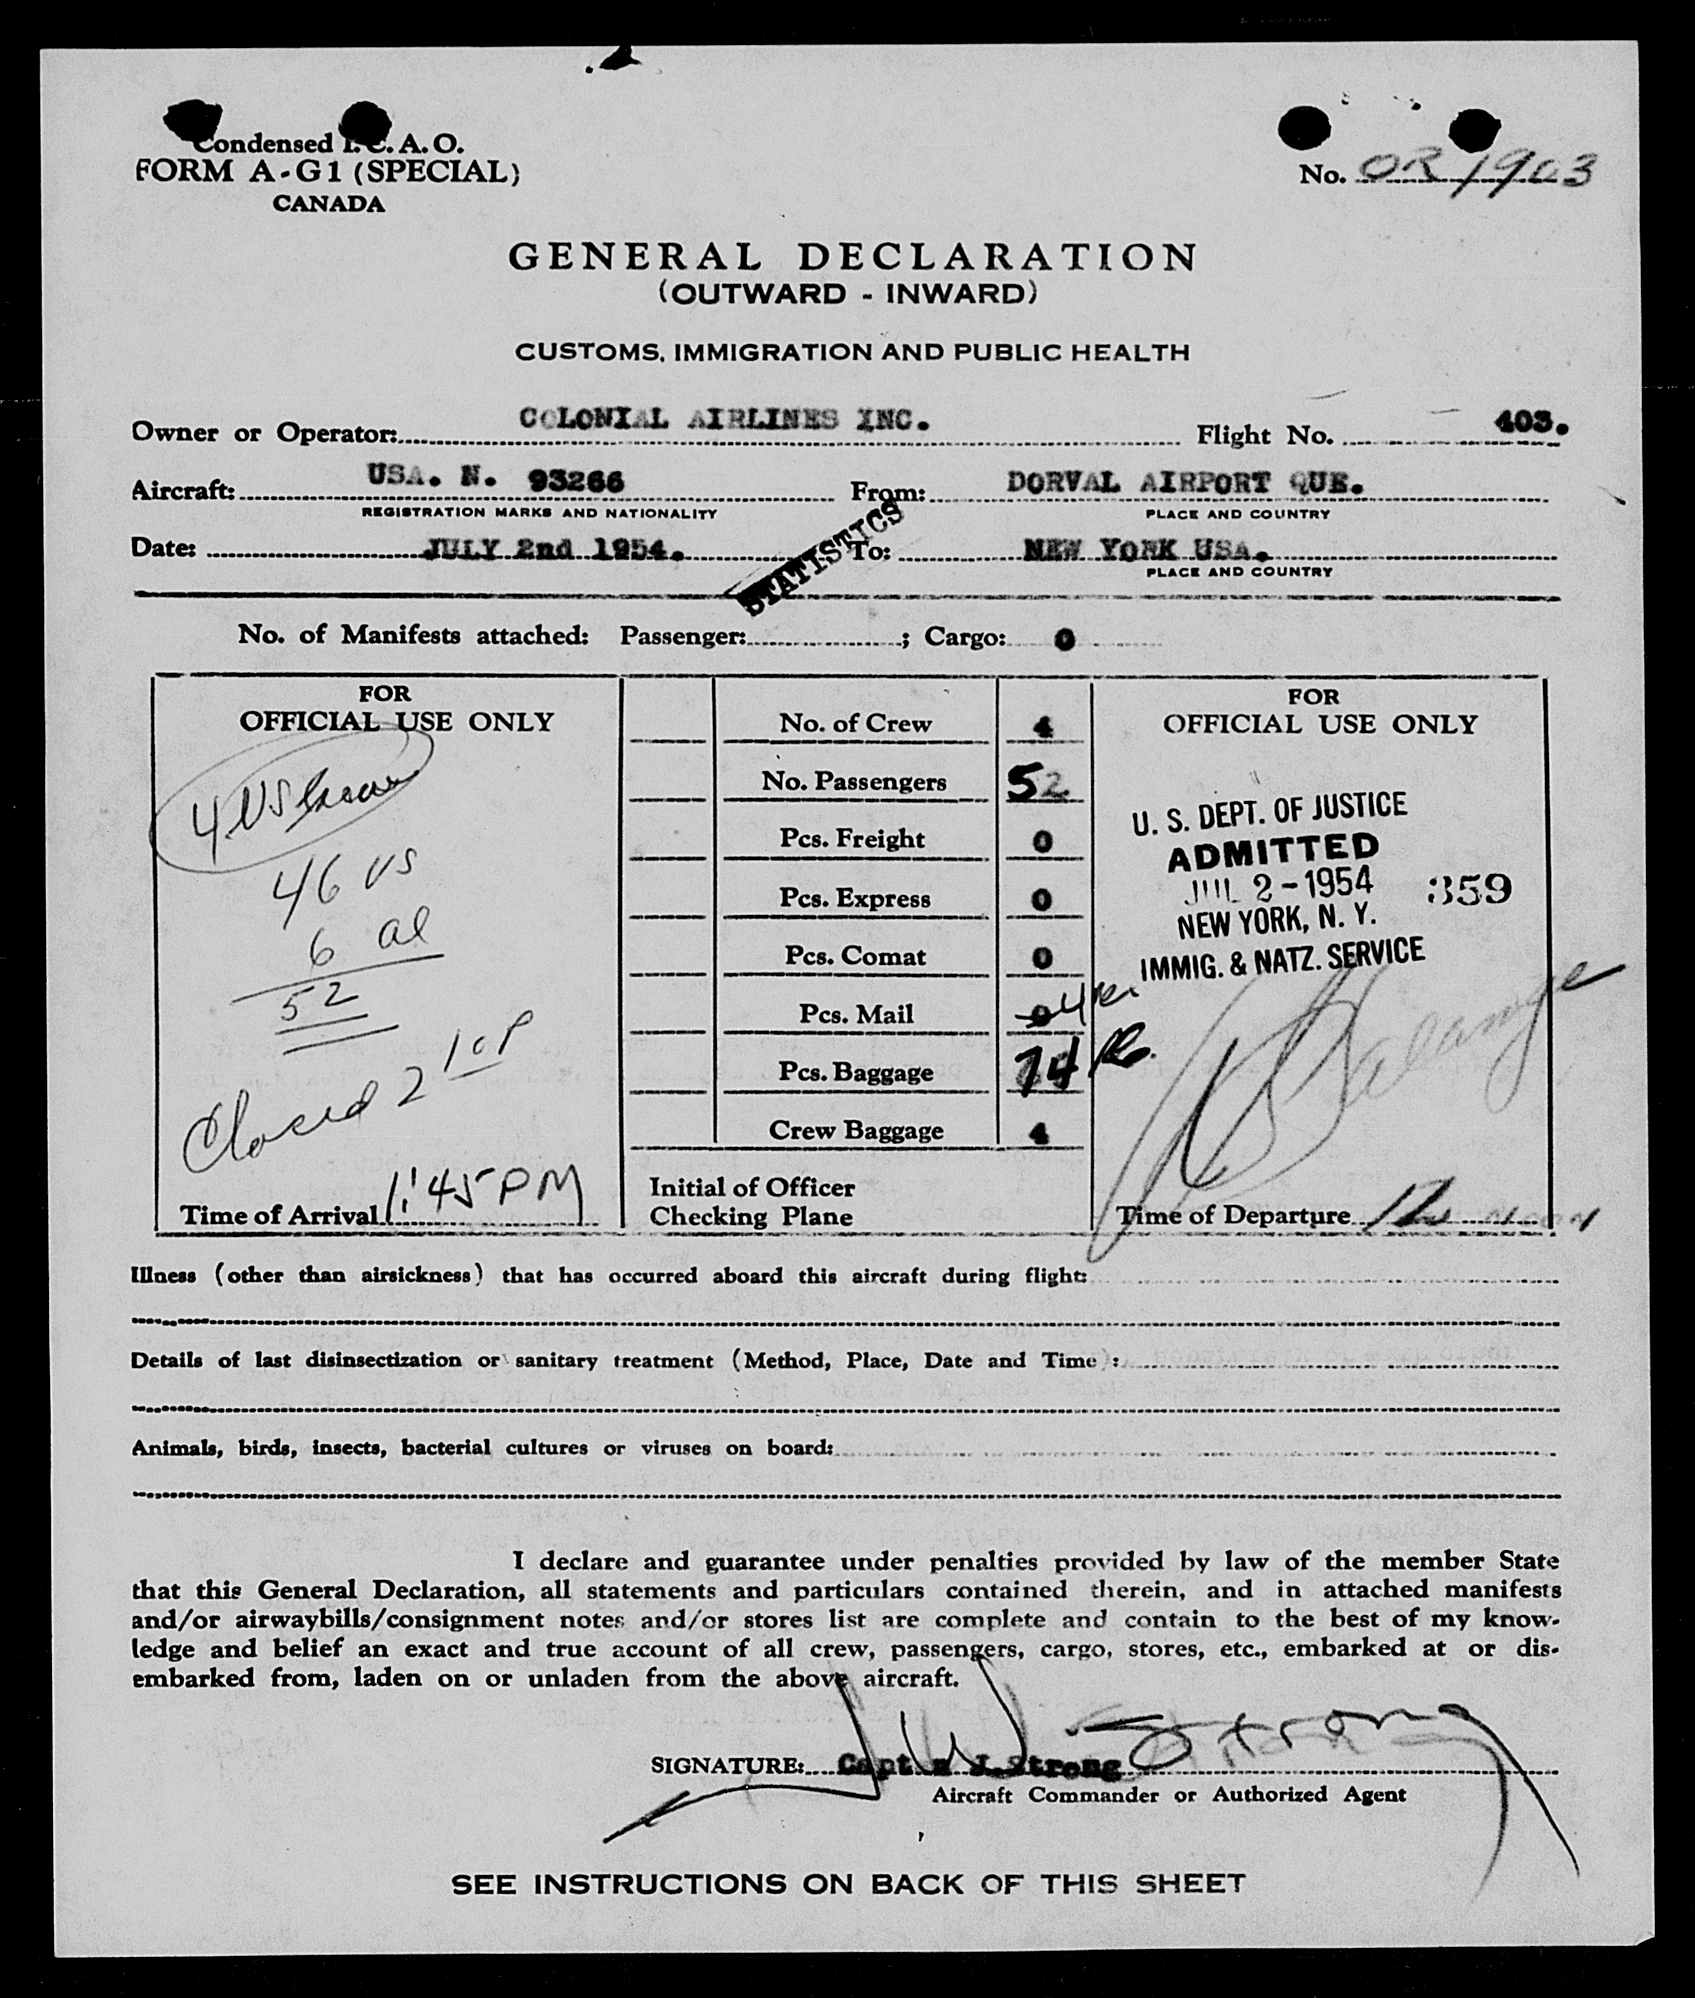 Condensed I. C. A. O.
FORM A-G1 (SPECIAL)
CANADA
No. OR 1903
GENERAL DECLARATION
(OUTWARD - INWARD)
CUSTOMS, IMMIGRATION AND PUBLIC HEALTH
Owner or Operator: COLONIAL AIRLINES INC. Flight No. 403.
Aircraft: USA. N. 93266 From: DORVAL AIRPORT QUE.
REGISTRATION MARKS AND NATIONALITY PLACE AND COUNTRY
Date: JULY 2nd 1954. To: NEW YORK USA.
PLACE AND COUNTRY
STATISTICS
No. of Manifests attached: Passenger: ; Cargo: 0
FOR
OFFICIAL USE ONLY
4 US
46 US
6 al
52
Closed 2 10 P
Time of Arrival 1:45 PM
No. of Crew 4
No. Passengers 52
Pcs. Freight 0
Pcs. Express 0
Pcs. Comat 0
Pcs. Mail 0 4
Pcs. Baggage 74
Crew Baggage 4
Initial of Officer
Checking Plane
FOR
OFFICIAL USE ONLY
U. S. DEPT. OF JUSTICE
ADMITTED
JUL 2 - 1954 359
NEW YORK, N. Y.
IMMIG. & NATZ. SERVICE
Time of Departure 12 noon
Illness (other than airsickness) that has occurred aboard this aircraft during flight:
Details of last disinsectization or sanitary treatment (Method, Place, Date and Time):
Animals, birds, insects, bacterial cultures or viruses on board:
I declare and guarantee under penalties provided by law of the member State
that this General Declaration, all statements and particulars contained therein, and in attached manifests
and/or airwaybills/consignment notes and/or stores list are complete and contain to the best of my know-
ledge and belief an exact and true account of all crew, passengers, cargo, stores, etc., embarked at or dis-
embarked from, laden on or unladen from the above aircraft.
SIGNATURE: Capt J. Strong
Aircraft Commander or Authorized Agent
SEE INSTRUCTIONS ON BACK OF THIS SHEET